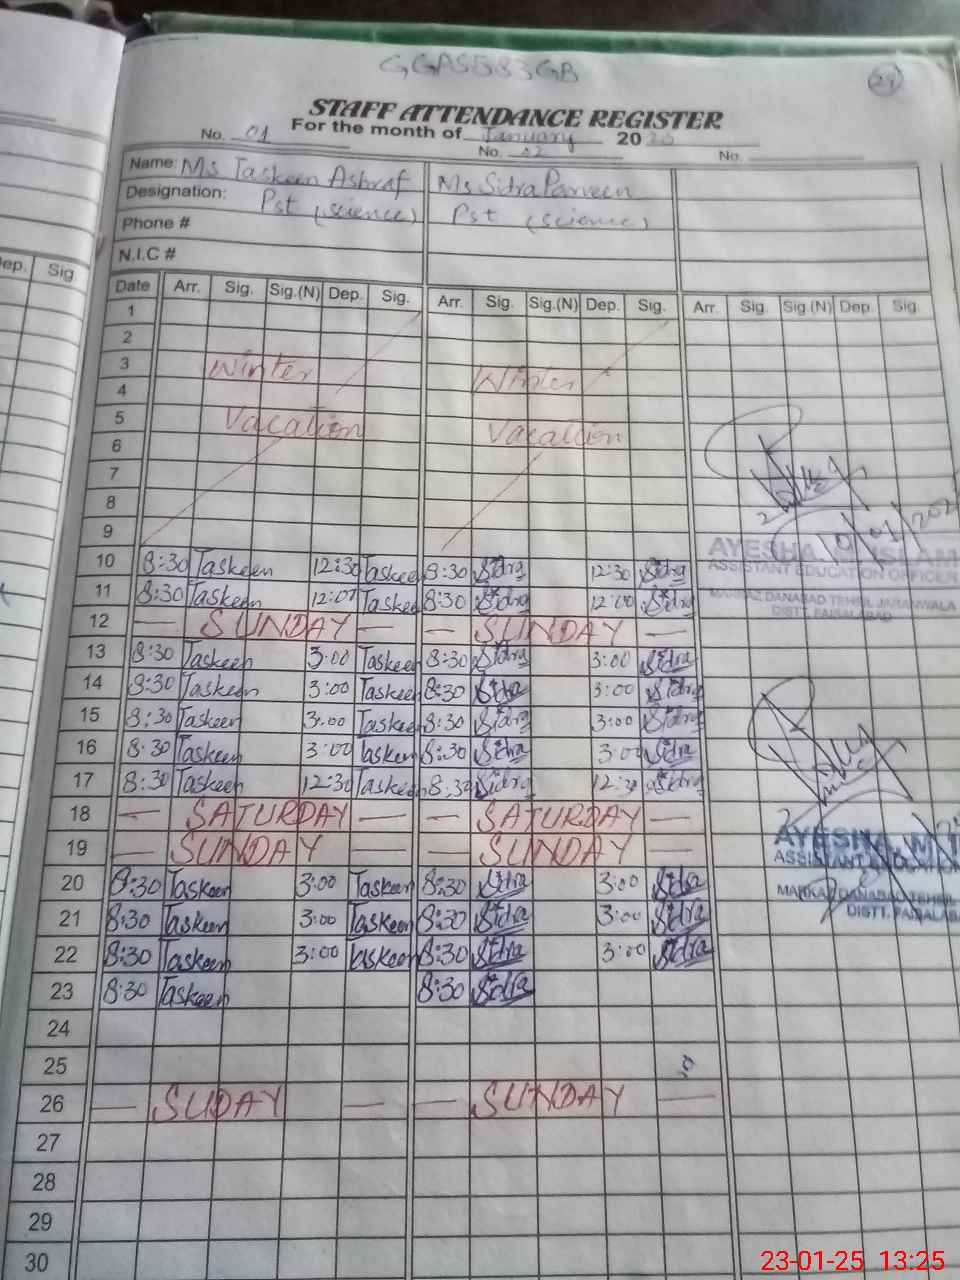 GGAS583GB
29
STAFF ATTENDANCE REGISTER
For the month of January 20
No. 01 No. 02 No.
Name: Ms Taskeen Ashraf Ms Sidra Parveen
Designation: Pst (science) Pst (science)
Phone #
N.I.C #
ep. Sig.
Date Arr. Sig. Sig.(N) Dep. Sig. Arr. Sig. Sig.(N) Dep. Sig. Arr. Sig. Sig.(N) Dep. Sig.
1
2
3 Winter Winter
4
5 Vacation Vacation
6
7
8
9
10 8:30 Taskeen 12:30 Taskeen 8:30 Sidra 12:30 Sidra
11 8:30 Taskeen 12:00 Taskeen 8:30 Sidra 12:00 Sidra
12 — SUNDAY — — SUNDAY —
13 8:30 Taskeen 3:00 Taskeen 8:30 Sidra 3:00 Sidra
14 8:30 Taskeen 3:00 Taskeen 8:30 Sidra 3:00 Sidra
15 8:30 Taskeen 3:00 Taskeen 8:30 Sidra 3:00 Sidra
16 8:30 Taskeen 3:00 Taskeen 8:30 Sidra 3:00 Sidra
17 8:30 Taskeen 12:30 Taskeen 8:30 Sidra 12:30 Sidra
18 — SATURDAY — — SATURDAY —
19 — SUNDAY — — SUNDAY —
20 8:30 Taskeen 3:00 Taskeen 8:30 Sidra 3:00 Sidra
21 8:30 Taskeen 3:00 Taskeen 8:30 Sidra 3:00 Sidra
22 8:30 Taskeen 3:00 Taskeen 8:30 Sidra 3:00 Sidra
23 8:30 Taskeen 8:30 Sidra
24
25
26 — SUDAY — — SUNDAY —
27
28
29
30
10/01/202
AYESHA ISLAM
ASSISTANT EDUCATION OFFICER
MARKAZ DANABAD TEHSIL JARANWALA
DISTT. FAISALABAD
AYESHA
ASSISTANT EDUCATION
MARKAZ DANABAD TEHSIL
DISTT. FAISALABA
23-01-25 13:25